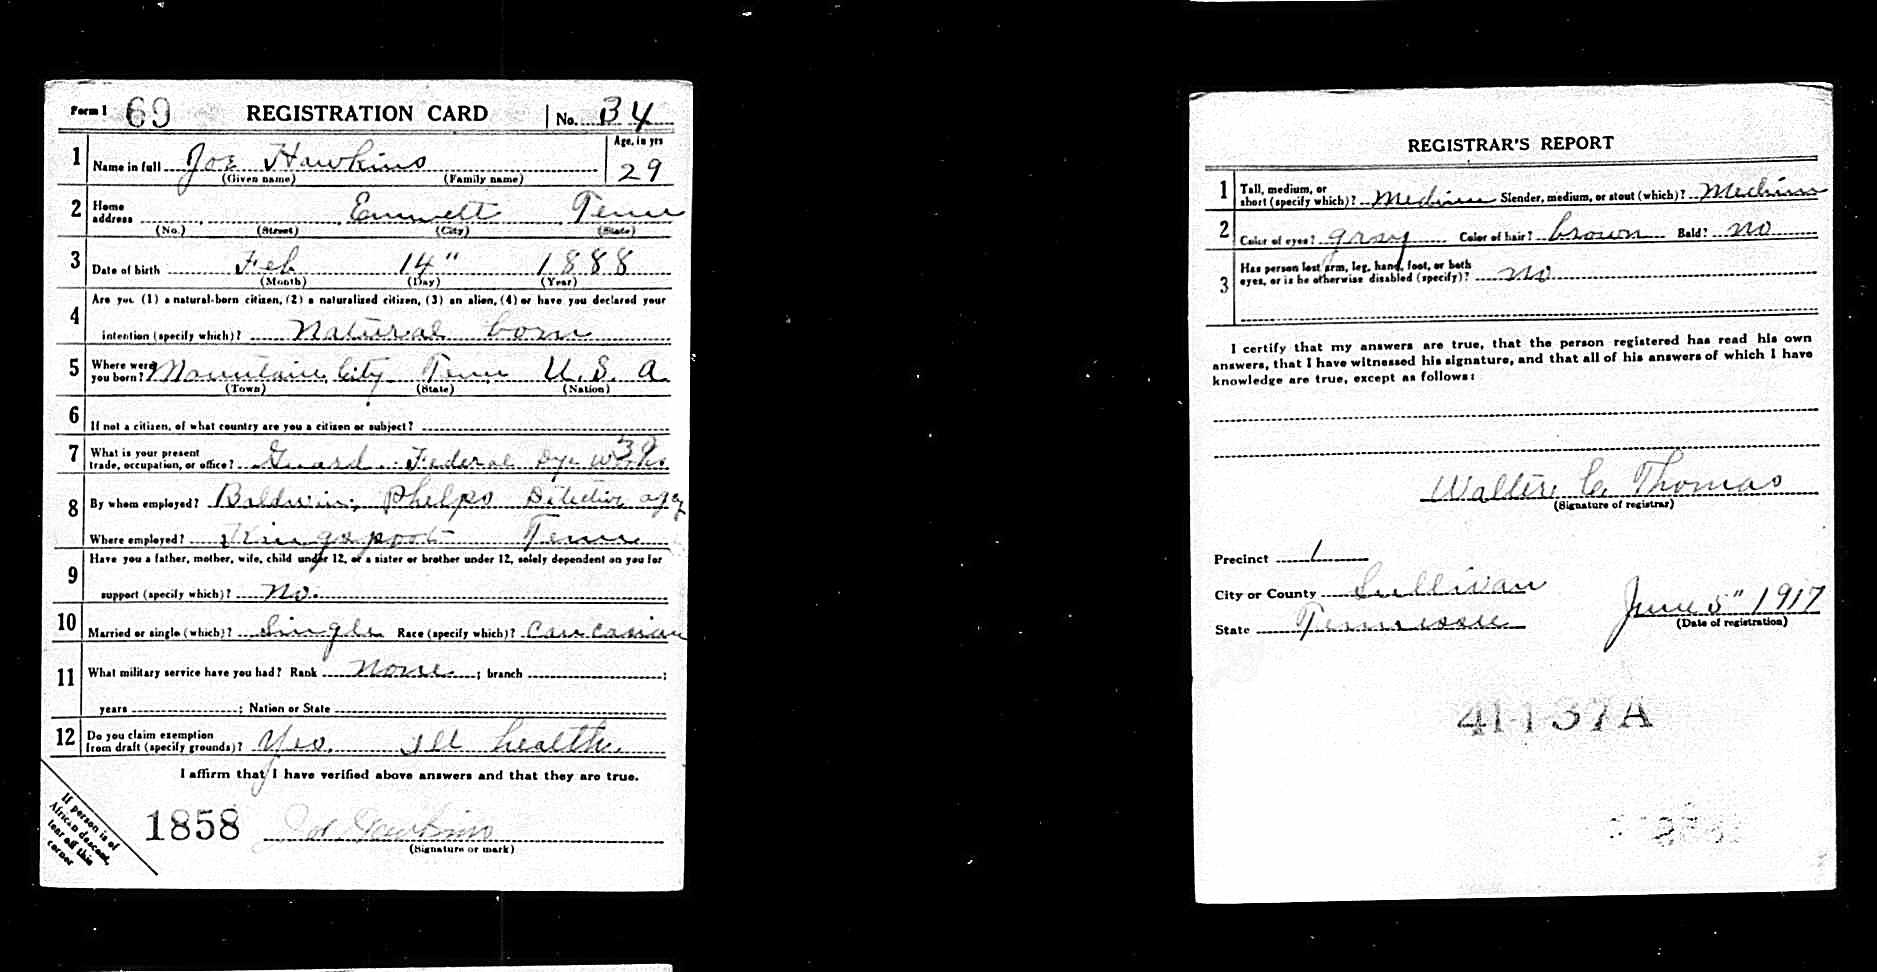 Form 1 69 REGISTRATION CARD No. 34
1 Name in full Joe Hawkins Age, in yrs 29
(Given name) (Family name)
2 Home address Emmett Tenn
(No.) (Street) (City) (State)
3 Date of birth Feb 14" 1888
(Month) (Day) (Year)
4 Are you (1) a natural-born citizen, (2) a naturalized citizen, (3) an alien, (4) or have you declared your
intention (specify which)? Natural born
5 Where were you born? Mountain City Tenn U.S.A
(Town) (State) (Nation)
6 If not a citizen, of what country are you a citizen or subject?
7 What is your present
trade, occupation, or office? Guard Federal Dye Works 39
8 By whom employed? Baldwin, Phelps Detective agcy
Where employed? Kingsport Tenn
9 Have you a father, mother, wife, child under 12, or a sister or brother under 12, solely dependent on you for
support (specify which)? No.
10 Married or single (which)? Single Race (specify which)? Caucasian
11 What military service have you had? Rank None ; branch ;
years ; Nation or State
12 Do you claim exemption
from draft (specify grounds)? Yes. Ill health.
I affirm that I have verified above answers and that they are true.
1858 Joe Hawkins
(Signature or mark)
If person is of
African descent,
tear off this
corner
REGISTRAR'S REPORT
1 Tall, medium, or
short (specify which)? Medium Slender, medium, or stout (which)? Medium
2 Color of eyes? gray Color of hair? brown Bald? no
3 Has person lost arm, leg, hand, foot, or both
eyes, or is he otherwise disabled (specify)? no
I certify that my answers are true, that the person registered has read his own
answers, that I have witnessed his signature, and that all of his answers of which I have
knowledge are true, except as follows:
Walter C. Thomas
(Signature of registrar)
Precinct 1
City or County Sullivan
State Tennessee
June 5" 1917
(Date of registration)
41-1 37A